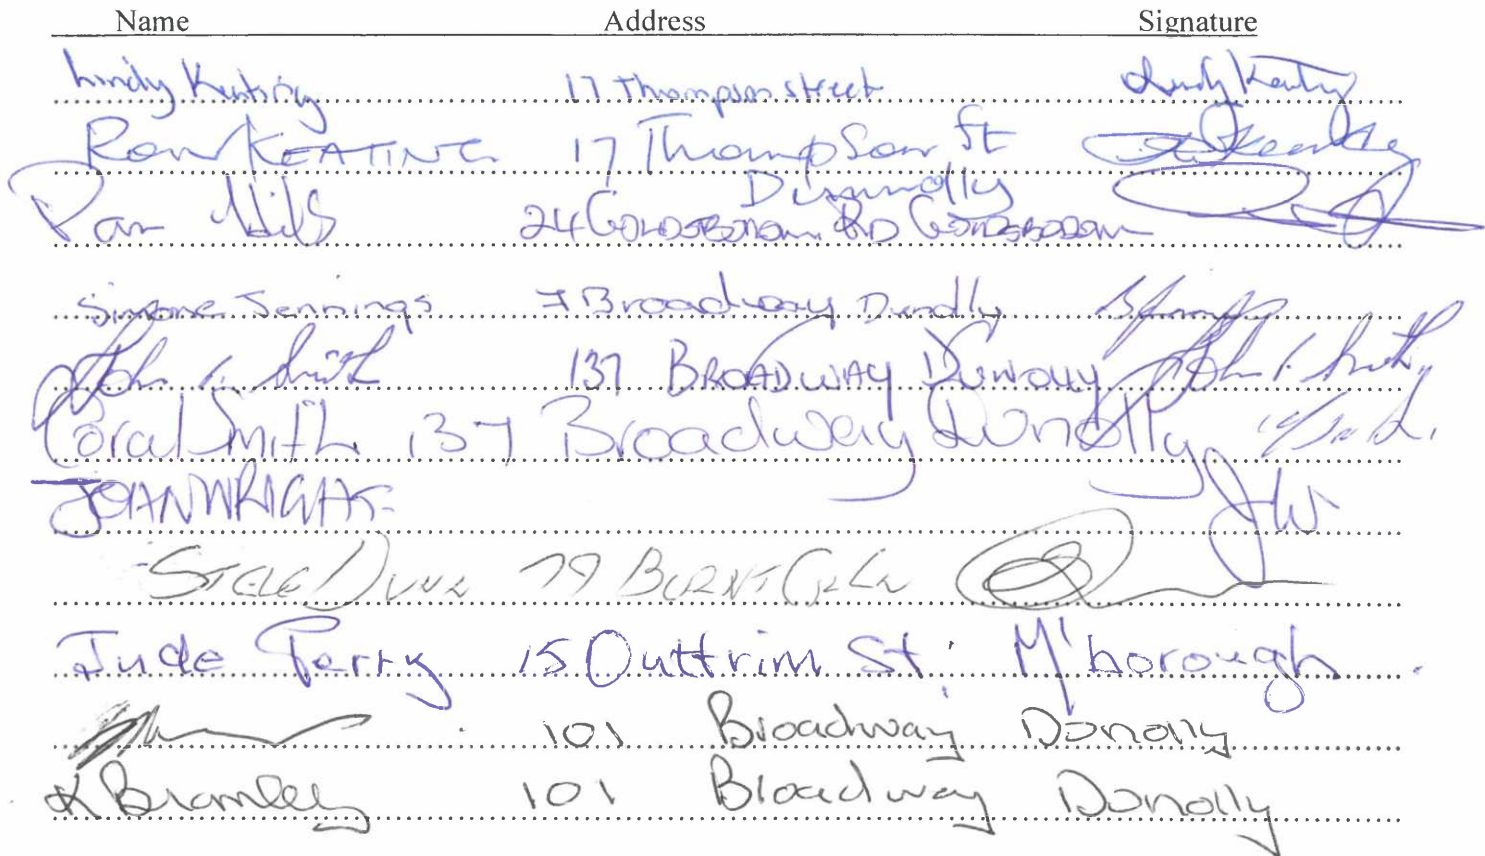 Name Address Signature
Lindy Keating 17 Thompson street Lindy Keating
Ron KEATING 17 Thompson St
Dunnolly
Pam Mills 24 GOLDSBOROUGH RD GOLDSBOROUGH
Simone Jennings 7 Broadway Dunolly
John L. Smith 137 BROADWAY DUNOLLY John L. Smith
Coral Smith 137 Broadway Dunolly
JOAN WRIGHT JW
STEVE DUNN 79 BURNT CK LN
Jude Perry 15 Outtrim St, M'borough.
101 Broadway Donolly
K Bramley 101 Broadway Donolly